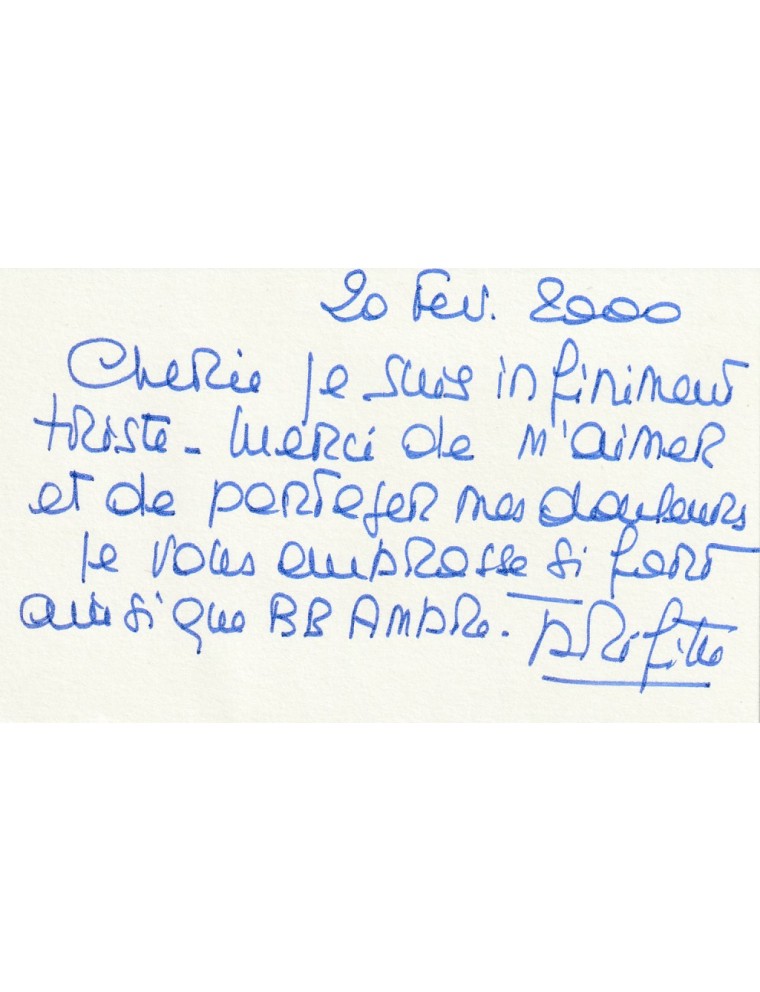 20 Fev. 2000
Cherie je suis infiniment
triste - Merci de m'aimer
et de partager mes douleurs
je vous embrasse si fort
ainsi que BB Ambre. Brigitte